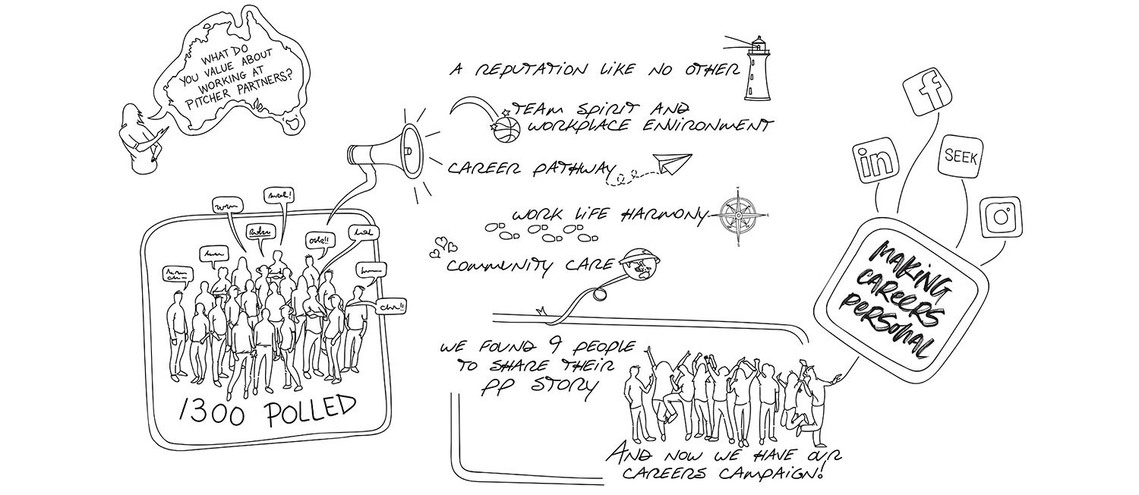 WHAT DO
YOU VALUE ABOUT
WORKING AT
PITCHER PARTNERS?
1300 POLLED
A REPUTATION LIKE NO OTHER
TEAM SPIRIT AND
WORKPLACE ENVIRONMENT
CAREER PATHWAY
WORK LIFE HARMONY
COMMUNITY CARE
WE FOUND 9 PEOPLE
TO SHARE THEIR
PP STORY
AND NOW WE HAVE OUR
CAREERS CAMPAIGN!
f
in
SEEK
MAKING
CAREERS
PERSONAL